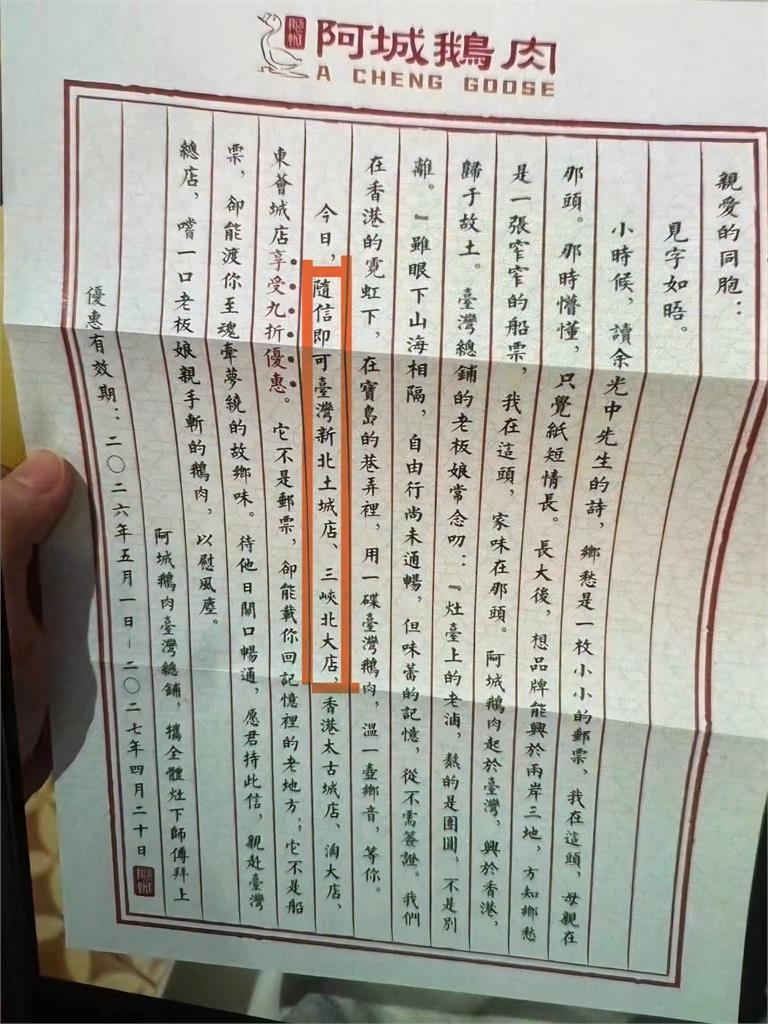 阿城鵝肉
A CHENG GOOSE
親愛的同胞：
見字如晤。
小時候，讀余光中先生的詩，鄉愁是一枚小小的郵票，我在這頭，母親在
那頭。那時懵懂，只覺紙短情長。長大後，想品牌能興於兩岸三地，方知鄉愁
是一張窄窄的船票，我在這頭，家味在那頭。阿城鵝肉起於臺灣，興於香港，
歸于故土。臺灣總鋪的老板娘常念叨：『灶臺上的老滷，熬的是團圓，不是別
離。』雖眼下山海相隔，自由行尚未通暢，但味蕾的記憶，從不需簽證。我們
在香港的霓虹下，在寶島的巷弄裡，用一碟臺灣鵝肉，溫一壺鄉音，等你。
今日，隨信即可臺灣新北土城店、三峽北大店，香港太古城店、海大店、
東薈城店享受九折優惠。它不是郵票，卻能載你回記憶裡的老地方；它不是船
票，卻能渡你至魂牽夢繞的故鄉味。待他日關口暢通，愿君持此信，親赴臺灣
總店，嚐一口老板娘親手斬的鵝肉，以慰風塵。
阿城鵝肉臺灣總鋪，攜全體灶下師傅拜上
優惠有效期：二〇二六年五月一日－二〇二七年四月二十日